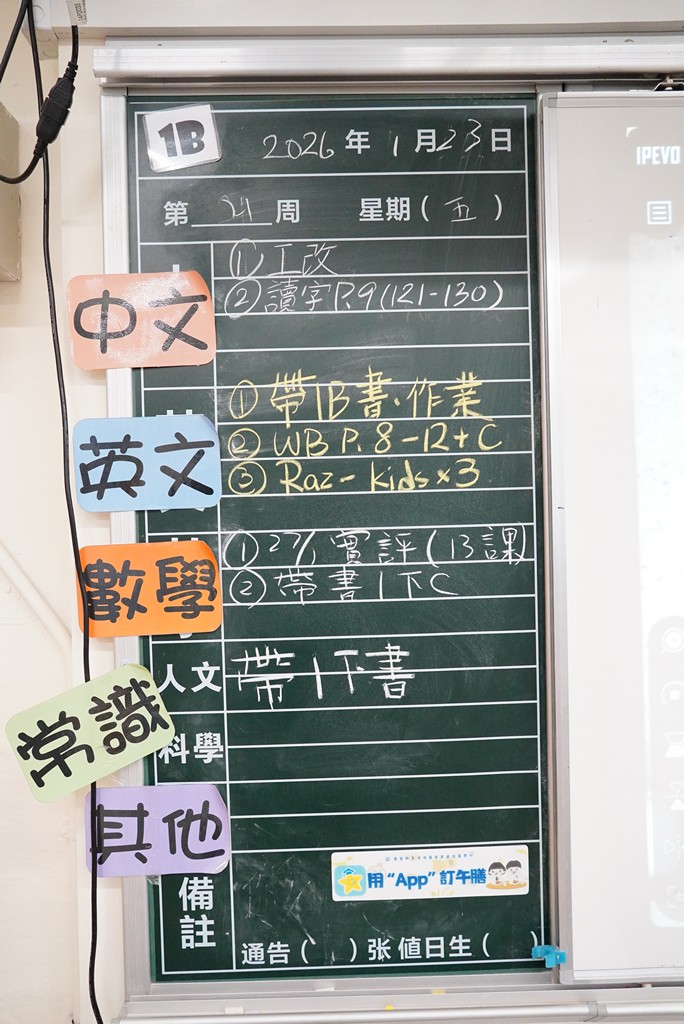 1B 2026年1月23日
第21周 星期(五)
中文
①工改
②讀字P.9(121-130)
英文
①帶1B書、作業
②WB P.8-12+C
③Raz-kids×3
數學
①27/1 實評(13課)
②帶書1下C
人文 帶1下書
常識
科學
其他
用“App”訂午膳
備註
通告( )张 值日生( )
IPEVO